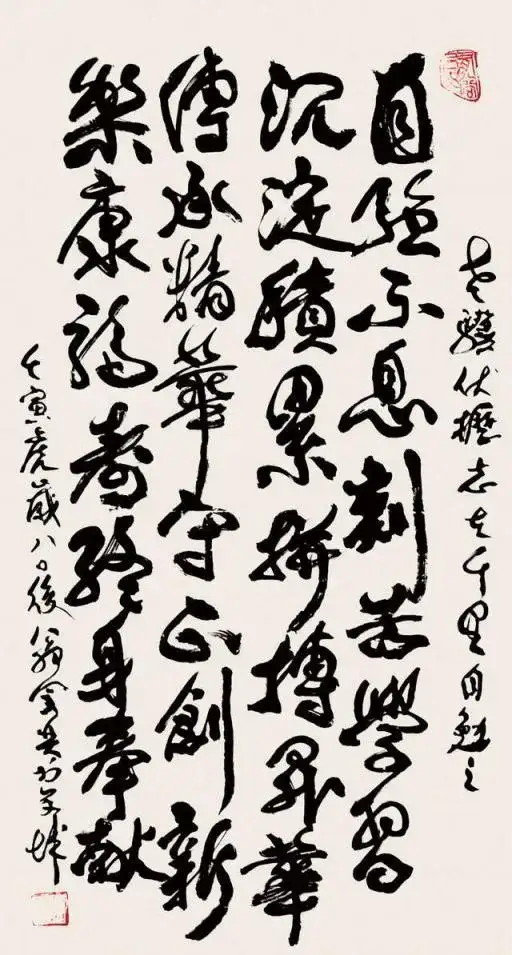 老驥伏櫪志在千里自勉之
自强不息刻苦學習
沉淀積累拚搏昇華
傳承精華守正創新
樂康福壽終身奉獻
壬寅虎歲八〇後翁書羊城